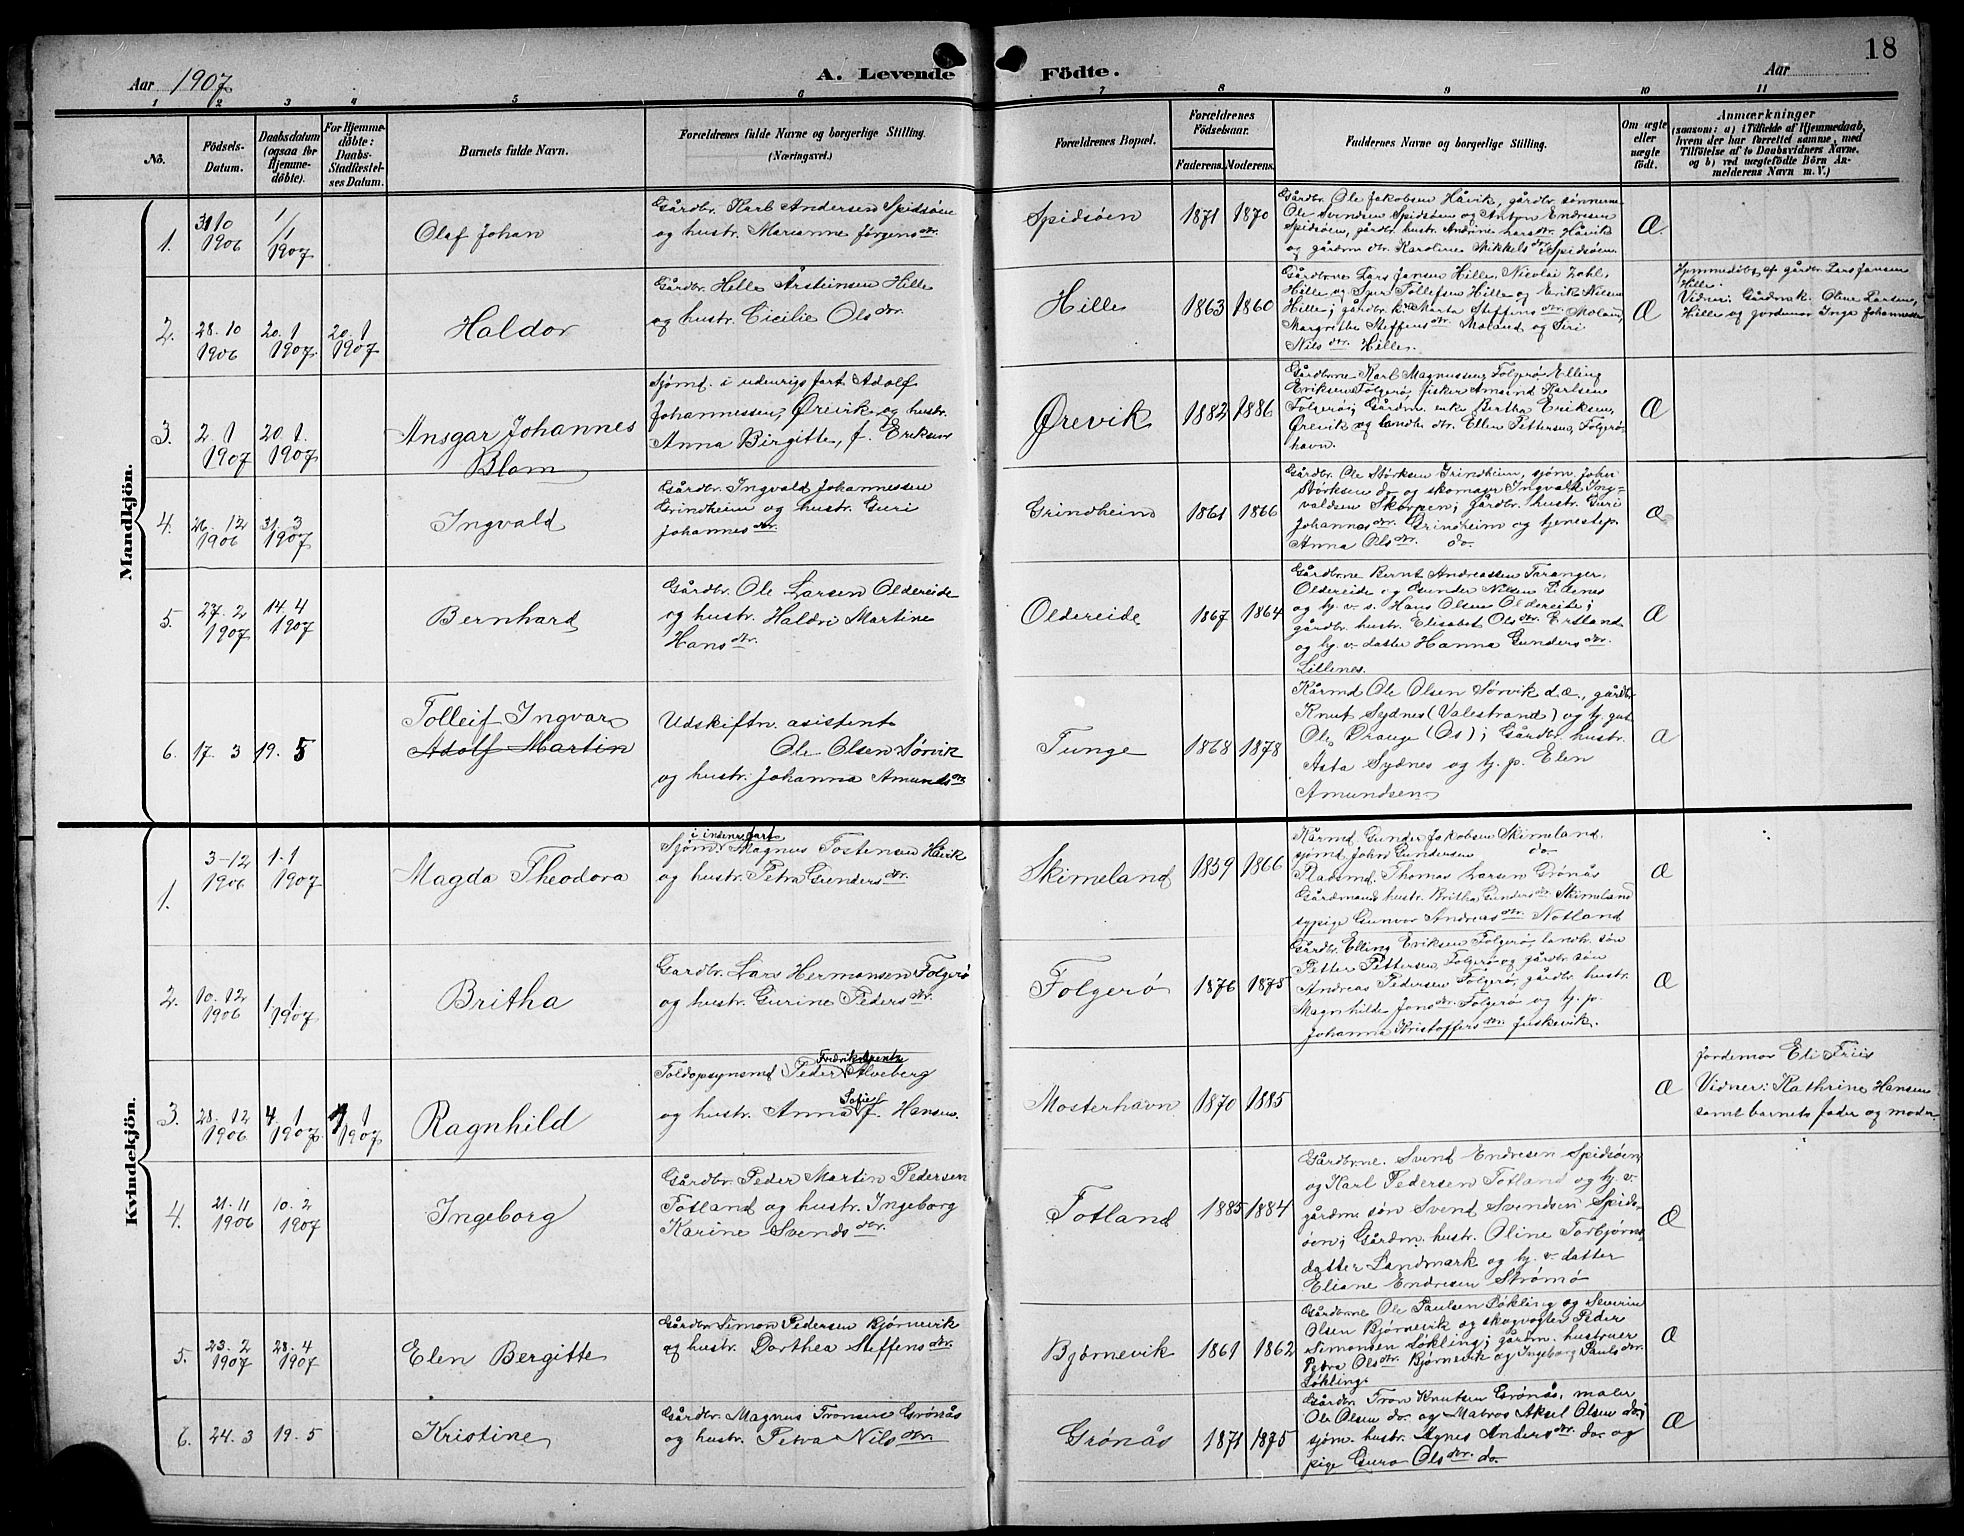 18
Aar 1907
A. Levende Födte.
Aar
1 2 3 4 5 6 7 8 9 10 11
No.
Födsels-
Datum.
Daabsdatum
(ogsaa for
Hjemme-
döbte).
For Hjemme-
döbte:
Daabs-
Stadfæstel-
ses Datum.
Barnets fulde Navn.
Forældrenes fulde Navne og borgerlige Stilling.
(Næringsvei.)
Forældrenes Bopæl.
Forældrenes
Födselsaar.
Faderens. Moderens.
Faddernes Navne og borgerlige Stilling.
Om ægte
eller
uægte
födt.
Anmærkninger
(saasom: a) i Tilfælde af Hjemmedaab,
hvem der har forrettet samme, med
Tilföielse af to Daabsvidners Navne,
og b) ved uægtefödte Börn An-
melderens Navn m. V.)
Mandkjön.
1.
31 10
1906
1/1
1907
Olaf Johan
Gårdbr. Karl Andersen Spidsøen
og hustr. Marianne Jørgensdtr.
Spidsøen
1871 1870
Gårdbr. Ole Jakobsen Håvik, gårdbr. sønnerne
Ole Svendsen Spidsøen og Anton Endresen
Spidsøen, gårdbr. hustr. Andrine Larsdtr. Håvik
og gårdm. dtr. Karoline Mikkelsdtr. Spidsøen
Æ.
2.
28. 10
1906
20. 1
1907
20. 1
1907
Haldor
Gårdbr. Helle Årsteinsen Hille
og hustr. Cicilie Olsdtr.
Hille
1863 1860
Gårdbrne Lars Jansen Hille, Nicolai Zahl,
Hille og Sjur Tollefsen Hille og Erik Nilsen
Hille; gårdbr. k. Marta Steffensdtr. Moland,
Margrethe Steffensdtr. Moland og Siri
Nilsdtr. Hille.
Æ
Hjemmedøbt af gårdbr. Lars Jansen
Hille.
Vidner: Gårdmk. Oline Larsen,
Hille og jordemor Inga Johannesen
3.
2. 1
1907
20. 1.
1907
Ansgar Johannes
Blom
Sjømd. i udenrigs fart Adolf
Johannessen, Ørevik og hustr.
Anna Birgitte, f. Eriksen
Ørevik
1882 1886
Gårdbrne Karl Magnussen, Folgerø, Elling
Eriksen Folgerø, fisker Amund Karlsen
Folgerø; Gårdm. enke Bertha Eriksen,
Ørevik og landh. dtr. Ellen Pettersen, Folgerø-
havn.
Æ
4.
26. 12
1906
31. 3
1907
Ingvald
Gårdbr. Ingvald Johannessen
Grindheim og hustr. Guri
Johannesdtr.
Grindheim
1861 1866
Gårdbr. Ole Størksen Grindheim, sjøm. Joher
Størksen do og skomager Ingvald Ing-
valdsen Skorpen; gårdbr. hustr. Guri
Johannesdtr. Grindheim og tjenestep.
Anna Olsdtr. do.
Æ
5.
27. 2
1907
14. 4
1907
Bernhard
Gårdbr. Ole Larsen Oldereide
og hustr. Haldri Martine
Hansdtr.
Oldereide
1867 1864
Gårdbrne Bernt Andreassen Taranger,
Oldereide og Gunder Nilsen Lidenes
og hj. v. s. Hans Olsen Oldereide;
gårdbr. hustr. Elisabet Olsdtr. Ertland
og hj. v. datter Hanna Gundersdtr.
Littlenes.
Æ
6.
17. 3
19. 5
Tolleif Ingvar
Adolf Martin
Udskiftn. asistent
Ole Olsen Sørvik
og hustr. Johanna Amundsdtr.
Tunge
1868 1878
Kårmd Ole Olsen Sørvik d.æ., gårdbr.
Knut Sydnes (Valestrand) og tj. gut
Ole Drange (Os); Gårdbr. hustr.
Asta Sydnes og tj. p. Elen
Amundsen
Æ
Kvindekjön.
1.
3-12
1906
1. 1
1907
Magda Theodora
i indenr. fart
Sjømd. Magnus Tostensen Håvik
og hustr. Petra Gundersdtr.
Skimeland
1859 1866
Kårmd. Gunder Jakobsen Skimeland,
sjømd. John Gundersen do
Pladsmd. Thomas Larsen Grønås
Gårdmands hustr. Britha Gundersdtr. Skimeland
sypige Gunvor Andreasdtr. Notland
Æ
2.
10. 12
1906
1. 1
1907
Britha
Gårdbr. Lars Hermansen Folgerø
og hustr. Gurine Pedersdtr.
Folgerø
1876 1875
Gårdbr. Elling Eriksen Folgerø, landh. søn
Petter Pettersen, Folgerø og gårdbr. søn
Andreas Pedersen Folgerø, gårdbr. hustr.
Magnhilde Jonsdtr. Folgerø og tj. p.
Johanna Kristoffersdtr. Juskevik.
Æ
3.
28. 12
1906
4. 1
1907
4 1
1907
Ragnhild
Toldopsynsmd Peder Fredrik Alveberg
og hustr. Anna Sofie f. Hansen.
Mosterhavn
1870 1885
Æ
Jordemor Eli Friis
Vidner: Kathrine Hansen
samt barnets fader og moder
4.
21. 11
1906
10. 2
1907
Ingeborg
Gårdbr. Peder Martin Pedersen
Totland og hustr. Ingeborg
Karine Svendsdtr.
Totland
1885 1884
Gårdbrne. Svend Endresen Spidsøen
og Karl Pedersen Totland og hj. v.
gårdm. søn Svend Svendsen Spids-
øen; Gårdm. hustr. Oline Torbjørns-
datter Landmark og hj. v. datter
Eliane Endresen Strømø
Æ
5.
23. 2
1907
28. 4
1907
Elen Bergitte
Gårdbr. Simon Pedersen Bjørnevik
og hustr. Dorthea Steffensdtr.
Bjørnevik
1861 1862
Gårdbrne Ole Paulsen Løkling og Severin
Olsen Bjørnevik og skogvogter Peder
Simonsen Løkling; gårdm. hustruer
Petra Olsdtr. Bjørnevik og Ingeborg Paulsdtr.
Løkling.
Æ
6.
24. 3
19. 5
Kristine
Gårdbr. Magnus Tronsen Grønås
og hustr. Petra Nilsdtr.
Grønås
1871 1875
Gårdbr. Tron Knutsen Grønås, maler
Ole Olsen do. og Matros Aksel Olsen do;
sjøm. hustr. Agnes Andersdtr. do og
pige Guro Olsdtr. do
Æ